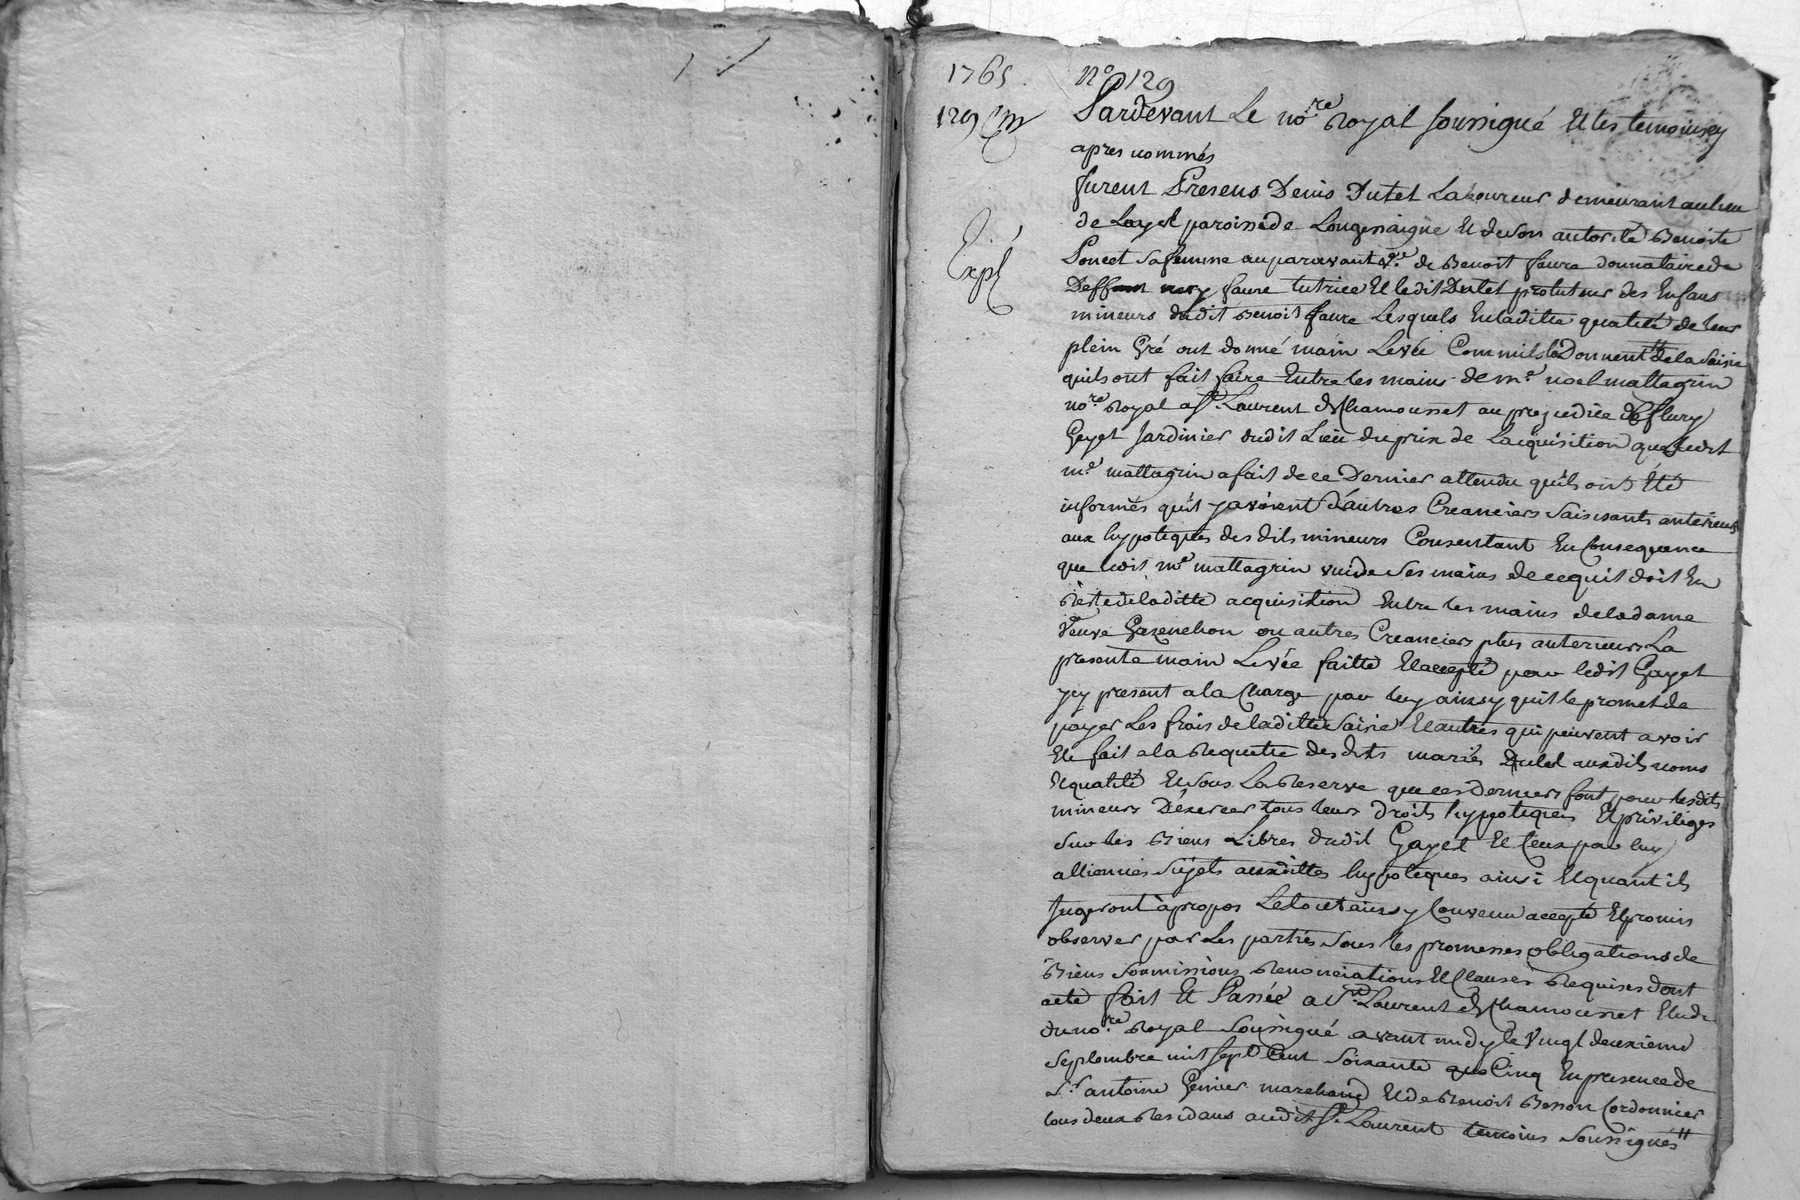 1765 No 129
129 Cm
Pardevant Le nore Royal soussigné Et les temoins cy
apres nommés
furent Presens Denis Dutel Laboureur demeurant au lieu
de Layel paroisse de Longessaigne Et de son autorité Benoite
Poncet sa femme auparavant ve de Benoit faure donnataire de
Deffunt faure tutrice Et ledit Dutel protuteur des Enfans
mineurs dudit Benoit faure Lesquels En ladite qualité de leur
plein Gré ont donné main Levée Comm ils Donnent de la Saisie
quils ont fait faire Entre les mains de me noel mattagrin
nore Royal a St Laurent de Chamousset au prejudice de fleury
Gayet Jardinier dudit Lieu du prix de Lacquisition que ledit
me mattagrin a fait de ce Dernier attendu quils ont Eté
informés quil y avoient d'autres Creanciers Saisissants anterieurs
aux hypoteques des dits mineurs Consentant En Consequence
que ledit me mattagrin vuide ses mains de ce quil doit En
Reste de laditte acquisition Entre les mains de la dame
Veuve ou autres Creanciers plus anterieurs La
presente main Levée faitte Et accepté par ledit Gayet
icy present a la Charge par luy ainsy quil le promet de
payer Les frais de laditte Saisie Et autres qui peuvent avoir
Eté fait a la Requette des dits mariés Dutel auxdits noms
Et qualité Et sous La Reserve que ces Derniers font pour lesdits
mineurs D'exercer tous leurs droits hypoteques Et privileges
sur les Biens Libres dudit Gayet Et Ceux par luy
alliennés Sujets auxdittes hypoteques ainsi Et quant ils
Jugeront àpropos Le tout ainsy Convenu accepté Et promis
observer par Les parties Sous les promesses obligations de
Biens Soumissions Renonciations Et Clauses Requises dont
acte fait Et Passée a St Laurent de Chamousset Etude
du nore Royal Soussigné avant midy le Vingt deuxieme
Septembre mil sept Cent soixante Cinq En presence de
Sr antoine Genier marchand Et de Benoit Besson Cordonnier
tous deux Residans audit St Laurent temoins Soussignés
Expé